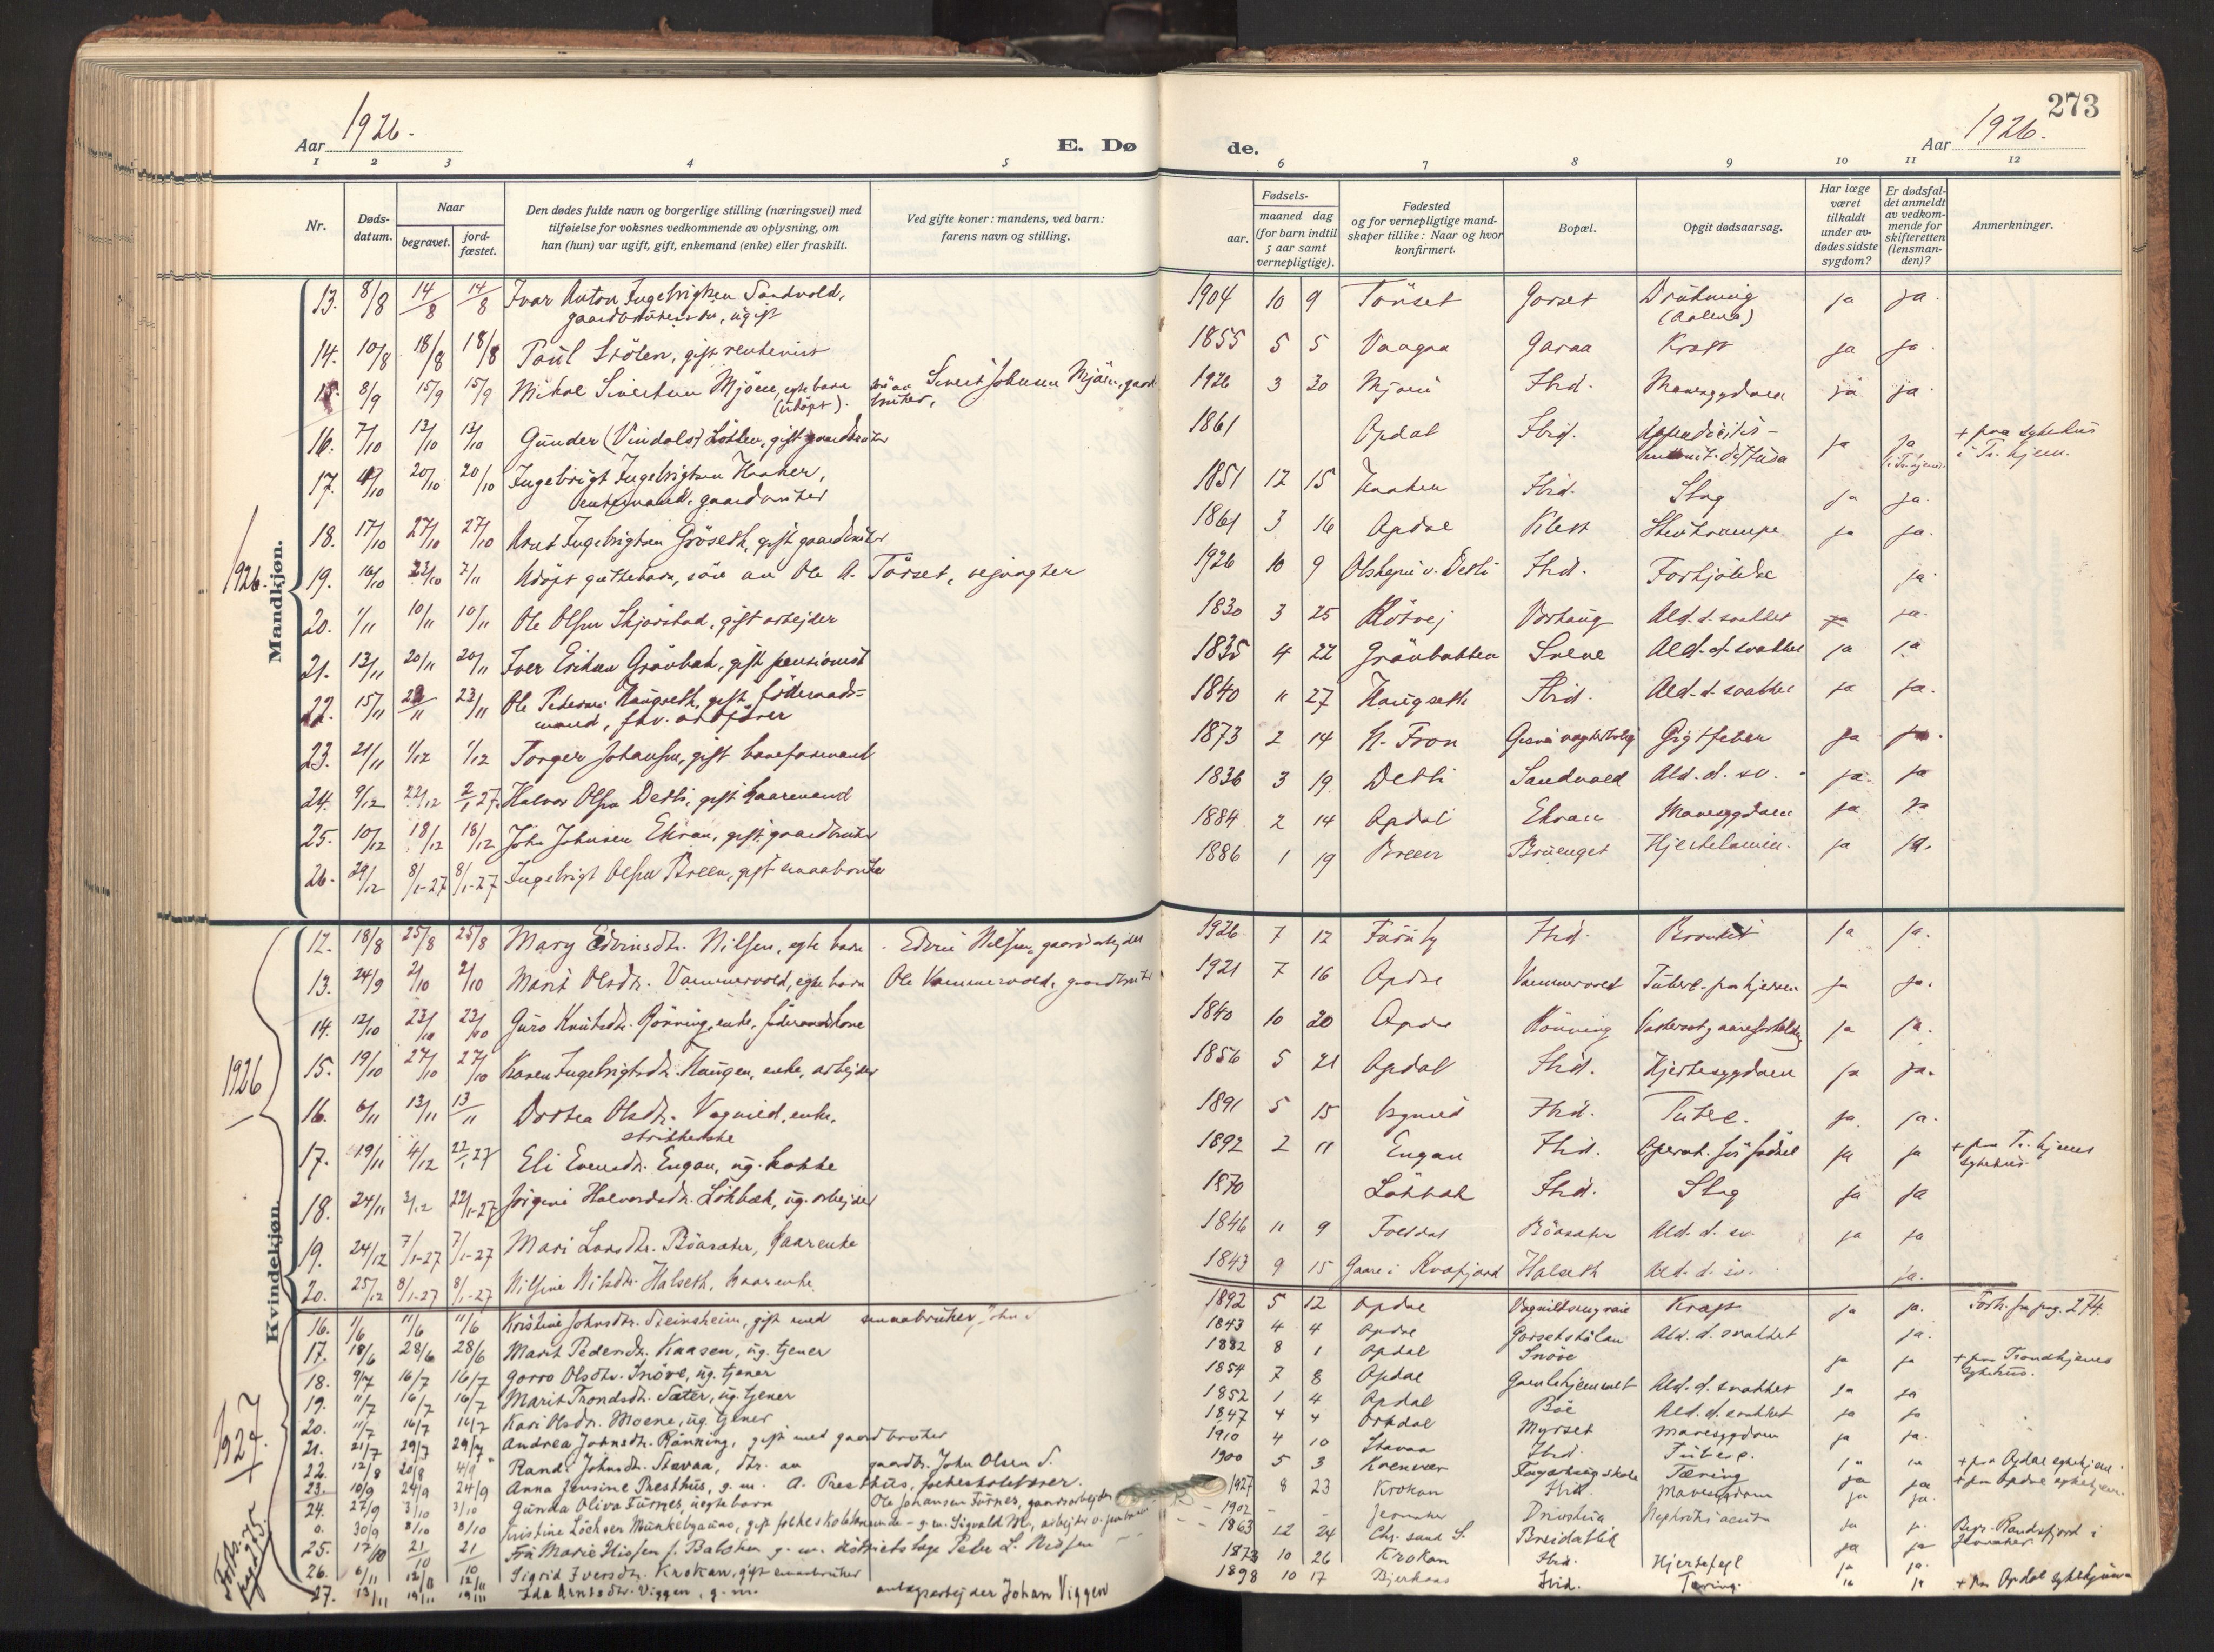 Aar 1926.
E. Dø
de.
Aar 1926.
273
1 2 3 4 5
6 7 8 9 10 11 12
Nr.
Døds-
datum.
Naar
begravet.
jord-
fæstet.
Den dødes fulde navn og borgerlige stilling (næringsvei) med
tilføielse for voksnes vedkommende av oplysning, om
han (hun) var ugift, gift, enkemand (enke) eller fraskilt.
Ved gifte koner: mandens, ved barn:
farens navn og stilling.
Fødsels-
aar.
maaned dag
(for barn indtil
5 aar samt
vernepligtige).
Fødested
og for vernepligtige mand-
skaper tillike: Naar og hvor
konfirmert.
Bopæl.
Opgit dødsaarsag.
Har læge
været
tilkaldt
under av-
dødes sidste
sygdom?
Er dødsfal-
det anmeldt
av vedkom-
mende for
skifteretten
(lensman-
den)?
Anmerkninger.
1926.
Mandkjøn.
13. 8/8 14/8 14/8 Ivar Anton Ingebrigtsen Sandvold, 1904 10 9 Tørset Gorset Drukning ja ja.
gaardbrukersøn, ugift (Aalma)
14. 10/8 18/8 18/8 Paul Stölen, gift rentenist 1855 5 5 Vaagaa Garaa Kræft ja ja.
15. 8/9 15/9 15/9 Mikal Sivertsen Mjöen, egte barn søn av Sivert Johnsen Mjöen, gaard- 1926 3 30 Mjöen Ibid. Mavesygdom ja ja.
(udöpt). bruker,
16. 7/10 13/10 13/10 Gunder (Vindals) Løkken, gift gaardbruker 1861 Opdal Ibid. Appendicitis - ja ja + paa sykehus
diffusa i Tr.hjem.
17. 20/10 20/10 Ingebrigt Ingebrigtsen Haaker, 1851 12 15 Haaken Ibid. Slag ja ja.
enkemand, gaardbruker
18. 17/10 27/10 27/10 Knut Ingebrigtsen Gröseth, gift gaardbruker 1861 3 16 Opdal Klest ja ja.
19. 16/10 23/10 7/11 Udöpt guttebarn, søn av Ole A. Tørset, veivogter 1926 10 9 v. Detli Ibid. Forkjølelse ja.
20. 1/11 10/11 10/11 Ole Olsen Skjørstad, gift arbejder 1830 3 25 Vorhaug Ald.d. svakhet ja ja.
21. 13/11 20/11 20/11 Iver Eriksen Grønbak, gift pensionist 1835 4 22 Grønbakken Sneve Ald. d. svakhet ja ja
22. 15/11 23/11 23/11 Ole Pedersen Haugseth, gift föderaads- 1840 11 27 Haugseth Ibid. Ald. d. svakhet ja ja.
mand, fhv. ordförer
23. 21/11 1/12 1/12 Torger Johansen, gift baneformand 1873 2 14 N. Fron Gigtfeber ja ja.
24. 9/12 22/12 2/1 27. Halvor Olsen Detli, gift kaarmand 1836 3 19 Detli Sandvold Ald. d. sv. ja. ja
25. 10/12 18/12 18/12 John Johnsen Ekran, gift gaardbruker 1884 2 14 Opdal Ekran Mavesygdom ja ja
26. 29/12 8/1-27 8/1-27 Ingebrigt Olsen Breen, gift smaabruker 1886 1 19 Breen Bruenget Hjertelamm. ja ja.
1926
Kvindekjøn.
12. 18/8 25/8 25/8 Mary Edvinsdtr. Nilsen, egte barn - Edvin Nilsen, gaardarbejder 1926 7 12 Furuby Ibid. Bronkit ja ja.
13. 24/9 2/10 2/10 Marit Olsdtr. Vammervold, egte barn Ole Vammervold, gaardbruker 1921 7 16 Opdal Vammervold Tuberc. paa hjernen ja ja.
14. 12/10 23/10 23/10 Guro Knutsdtr. Rönning, enke, föderaadskone 1840 10 20 Opdal Rönning ja ja.
15. 19/10 27/10 27/10 Karen Ingebrigtsdtr. Haugen, enke, arbejder 1856 5 21 Opdal Ibid. Hjertesygdom ja ja.
16. 6/11 13/11 13/11 Dortea Olsdtr. Vognild, enke, 1891 5 15 Vognild Ibid. Tuberc. ja ja.
strikkerske
17. 19/11 4/12 22/1 27 Eli Evensdtr. Engan, ug. kokke 1892 2 11 Engan Ibid. Operat. for fødsel ja ja + paa Tr. hjems
sykehus.
18. 24/11 3/12 22/1-27 Jörgine Halvordsdtr. Lökbæk, ug. arbejder 1870 Lökbæk Ibid. Slag ja ja
19. 24/12 7/1-27 7/1-27 Mari Larsdtr. Böasæter, kaarenke 1846 11 9 Foldal Böasæter Ald. d. sv. ja ja
20. 25/12 8/1-27 8/1-27 Nilsine Nilsdtr. Halseth, kaarenke 1843 9 15 Gaare i Kvæfjord Halseth Ald. d. sv. ja.
1927.
16. 1/6 11/6 11/6 Kristine Johnsdtr. Steinsheim, gift med smaabruker, John 1892 5 12 Opdal Kræft ja ja. Forts. fra pag. 274.
17. 18/6 28/6 28/6 Marit Pedersdtr. Kaasen, ug. tjener 1843 4 4 Opdal Gorsetstölan Ald. d. svakhet ja.
18. 9/7 16/7 16/7 Gorro Olsdtr. Snöve, ug. tjener 1882 8 1 Opdal Snöve ja ja + paa Trondhjems
sykehus.
19. 11/7 16/7 16/7 Marit Trondsdtr. Sæter, ug. tjener 1854 7 8 Opdal Gamlehjemmet Ald. d. svakhet ja ja
20. 11/7 16/7 16/7 Kari Olsdtr. Moene, ug. tjener 1852 1 4 Opdal Böe Ald. d. svakhet ja ja
21. 21/7 29/7 29/7 Andrea Johnsdtr. Rönning, gift med gaardbruker 1847 4 4 Orkdal Myrset Mavesygdom ja ja.
22. 12/8 20/8 4/9 Randi Johnsdtr. Stavaa, dtr. av gaardbr. John Olsen S. 1910 4 10 Stavaa Ibid. Tuberc. ja ja + paa Opdal sykehjem.
23. 10/9 24/9 24/9 Anna Jensine Presthus, g. m. A. Presthus, folkeskolelærer. 1900 5 3 Kvenvær skole Tæring ja ja + paa Opdal sykehjem.
24. 27/9 3/10 3/10 Gunda Oliva Furnes, uegte barn Ole Johansen Furnes, gaardsarbejder 1927 8 23 Krokan Ibid. Mavesygdom ja ja.
0. 30/9 8/10 8/10 Kristine Löchsen Munkebyaune, gift g. m. Sigvald M., arbejder 1902 - - Jevnaker Drivstua Nephritis acuta ja ja Begr. Randsfjord i
Jevnaker
25. 17/10 21/10 21/10 Fru Marie Nissen f. g. m. distriktslæge Peter L. Nissen 1863 12 24 Chr. sund S. Breidablik ja ja
26. 6/11 12/11 12/11 Sigrid Iversdtr. Krokan, gift smaabruker 1873 10 26 Krokan Ibid. Hjertefejl ja ja.
27. 13/11 19/11 19/11 Ida Arntsdtr. Viggen, g. m. anlægsarbejder Johan Viggen 1898 10 17 Bjerkaas Ibid. Tæring. ja ja + paa Opdal sykehjem
Forts.
pag. 275.